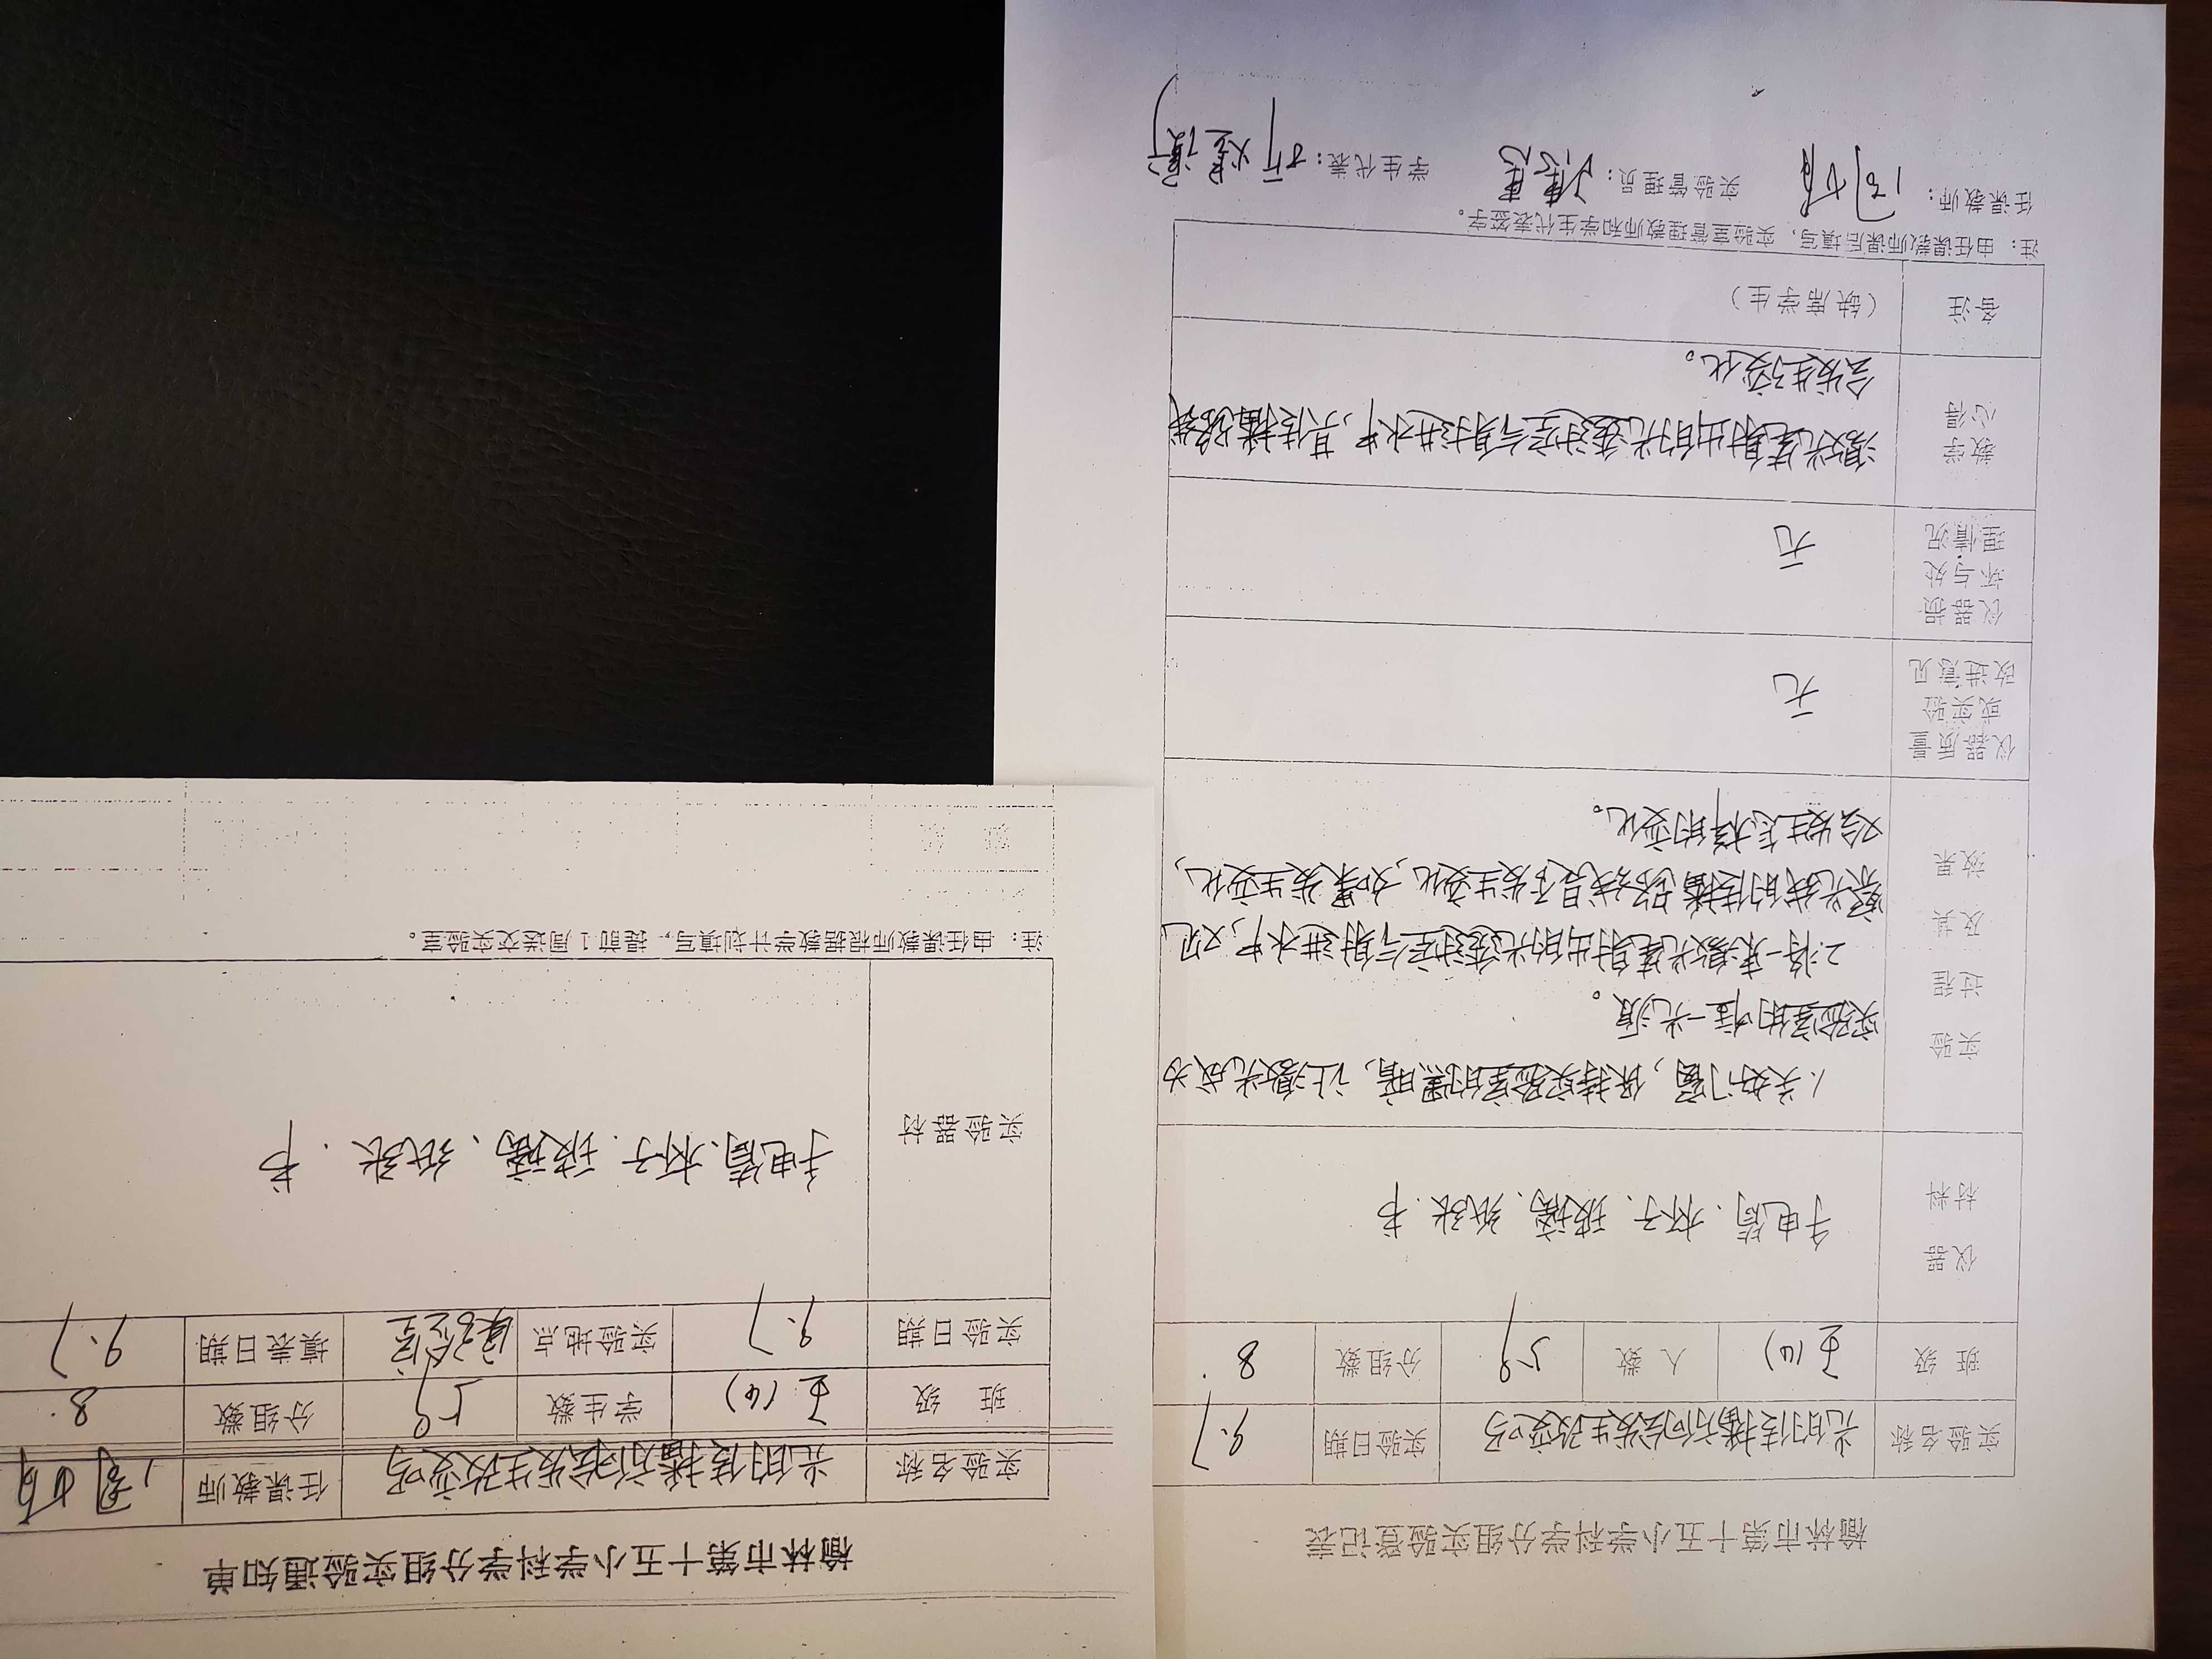 榆林市第十五小学科学分组实验登记表
实验名称 光的传播方向会发生改变吗 实验日期 9.7
班级 五(4) 人数 59 分组数 8
仪器材料 手电筒、杯子、玻璃、纸张、书
实验过程及其效果
1、关好门窗，保持实验室的黑暗，让激光成为
实验室的唯一光源。
2.将一束激光笔射出的光透过空气射进水中，观
察光线的传播路线是否发生变化，如果发生变化，
又会发生怎样的变化。
仪器质量或实验改进意见 无
仪器损坏与处理情况 无
教学心得
激光笔射出的光透过空气射进水中，其传播路线
会发生变化。
备注 (缺席学生)
注：由任课教师课后填写，实验室管理教师和学生代表签字。
任课教师： 实验管理员： 学生代表：
榆林市第十五小学科学分组实验通知单
实验名称 光的传播方向会发生改变吗 任课教师
班级 五(4) 学生数 59 分组数 8
实验日期 9.7 实验地点 实验室 填表日期 9.7
实验器材 手电筒、杯子、玻璃、纸张、书
注：由任课教师根据教学计划填写，提前1周送交实验室。